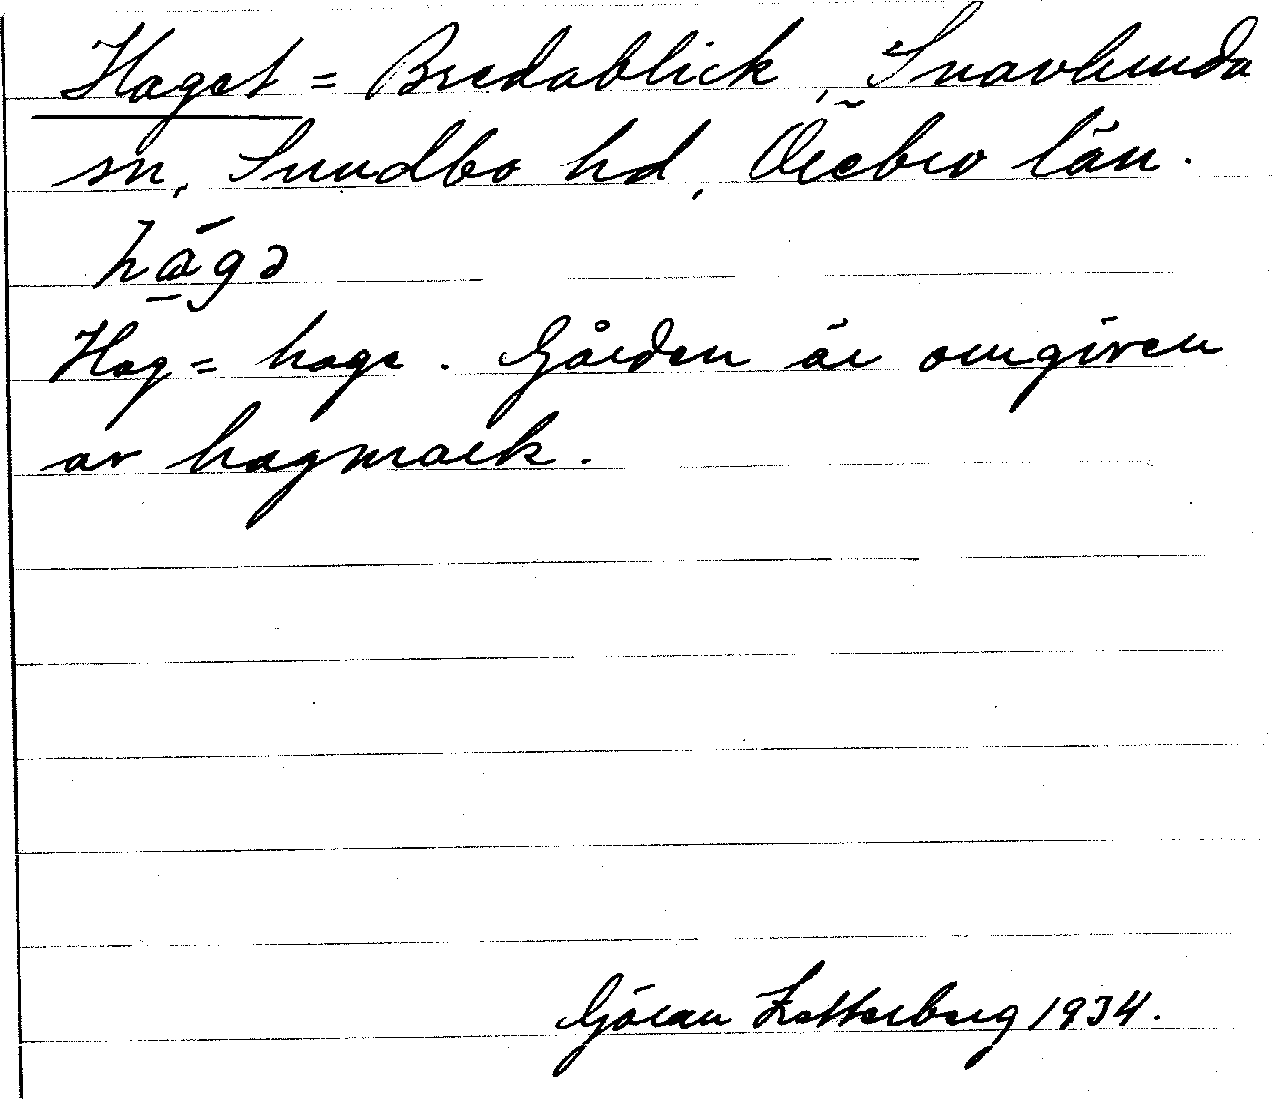 Haget = Bredablick, Snavlunda
sn, Sundbo hd, Örebro län.
hágə
Hag = hage. Gården är omgiven
av hagmark.
Göran Zetterberg 1934.